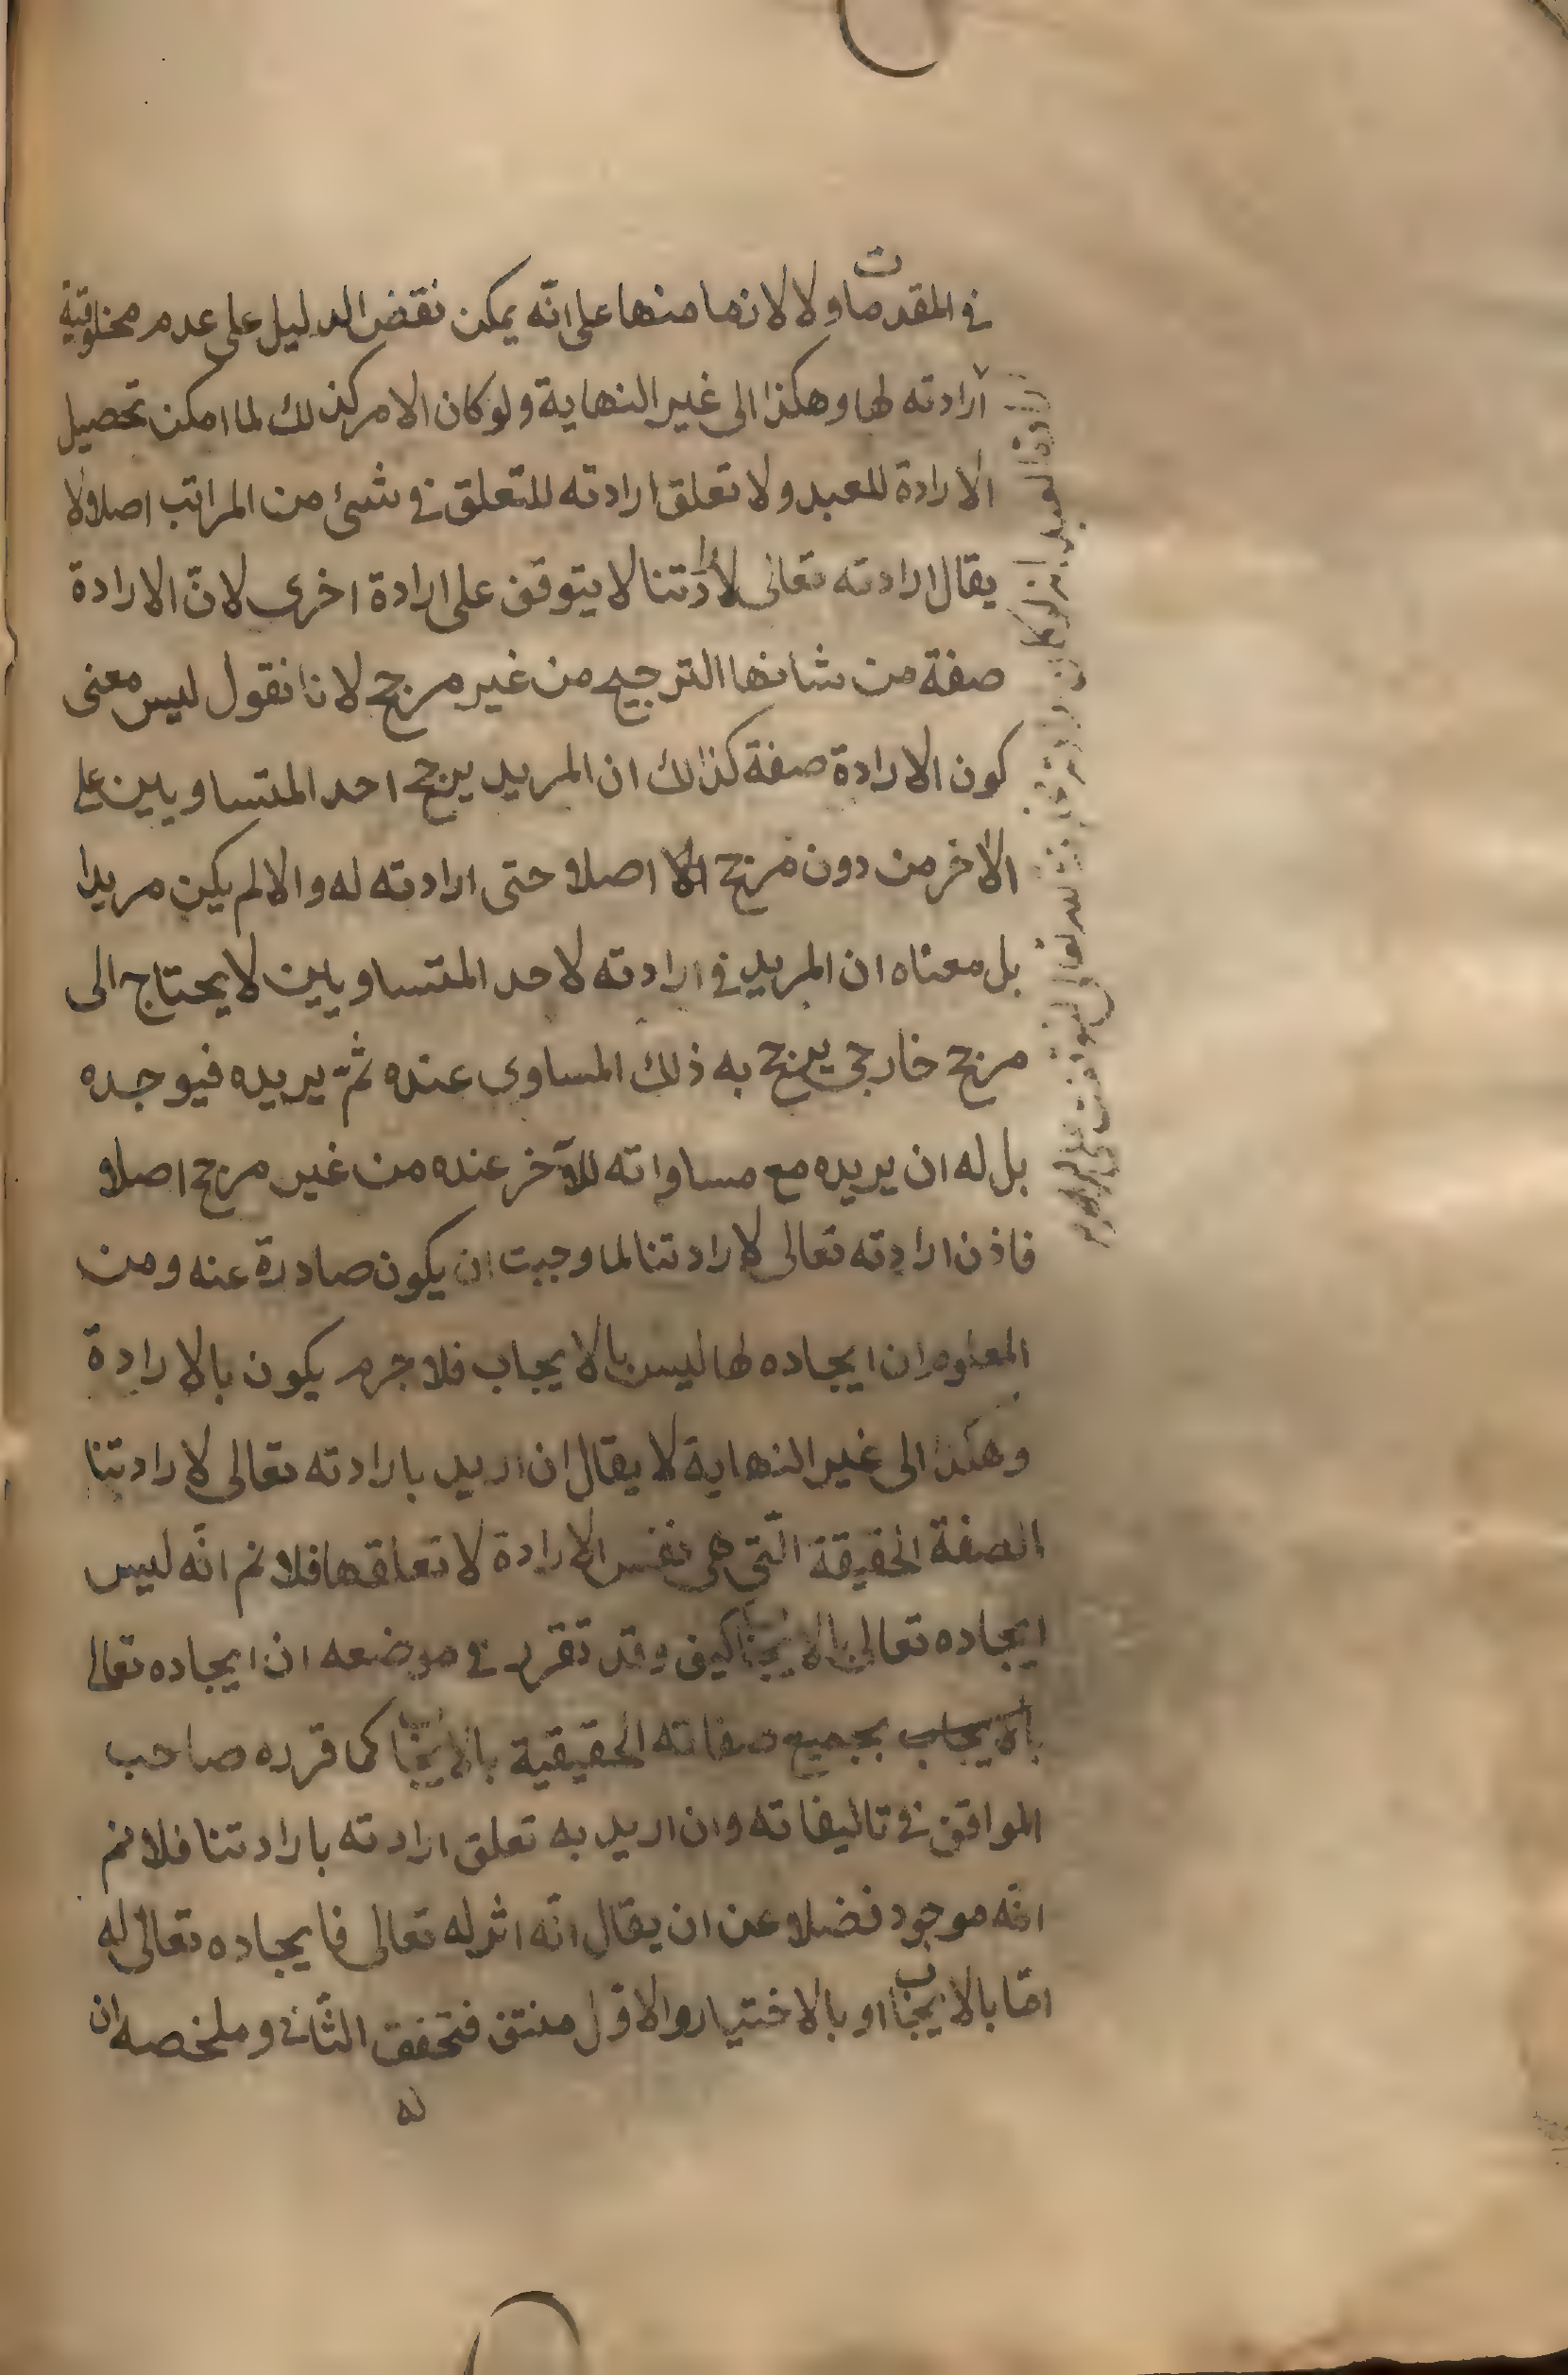 في المقدمات اولا لا نها منها على انّه يمكن نقض الدليل على عدم مخلوقية
ارادته لها وهكذا الى غير النهاية ولو كان الامر كذلك لما امكن تحصيل
الارادة للعبد ولا تعلق ارادته للتعلق في شئ من المراتب اصلا ولا
يقال ارادته تعالى لارادتنا لا يتوقف على ارادة اخرى لانّ الارادة
صفة من شانها الترجيح من غير مرجح لانا نقول ليس معنى
كون الارادة صفة كذلك ان المريد يرجح احد المتساويين على
الاخر من دون مرجح اصلا حتى ارادته له والا لم يكن مريدا
بل معناه ان المريد في ارادته لاحد المتساويين لا يحتاج الى
مرجح خارجي يرجح به ذلك المساوى عنده ثمّ يريده فيوجده
بل له ان يريده مع مساواته للآخر عنده من غير مرجح اصلا
فاذن ارادته تعالى لارادتنا لما وجبت ان يكون صادرة عنه ومن
المعلوم ان ايجاده لها ليس بالايجاب فلا جرم يكون بالارادة
وهكذا الى غير النهاية لا يقال ان اريد بارادته تعالى لارادتنا
الصفة الحقيقة الّتي هى نفس الارادة لا تعلقها فلانم انّه ليس
ايجاده تعالى بالايجاب كيف وقد تقرر في موضعه ان ايجاده تعالى
بالايجاب بجميع صفاته الحقيقية بالايجاب كما قرره صاحب
المواقف في تاليفاته وان اريد به تعلق ارادته بارادتنا فلانم
انّه موجود فضلا عن ان يقال انّه اثر له تعالى فايجاده تعالى له
امّا بالايجاب او بالاختيار والاوّل منتف فتحقق الثّاني وملخصه ان
له
ارادة العبد لو كان